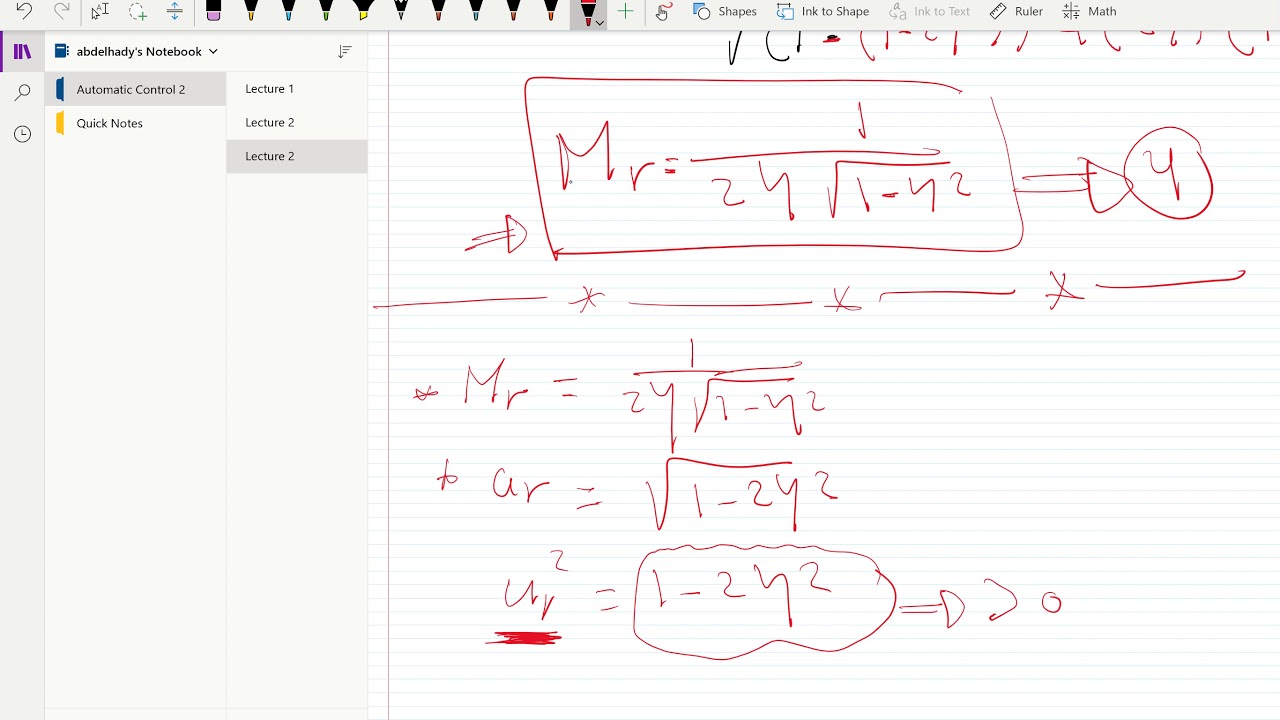 Shapes Ink to Shape Ink to Text Ruler Math
abdelhady's Notebook
Automatic Control 2 Lecture 1
Quick Notes Lecture 2
Lecture 2
Mr = 1 / 2η √1-η² ⇒ η
* Mr = 1 / 2η √1-η²
* ur = √1-2η²
ur² = 1-2η² ⇒ > 0